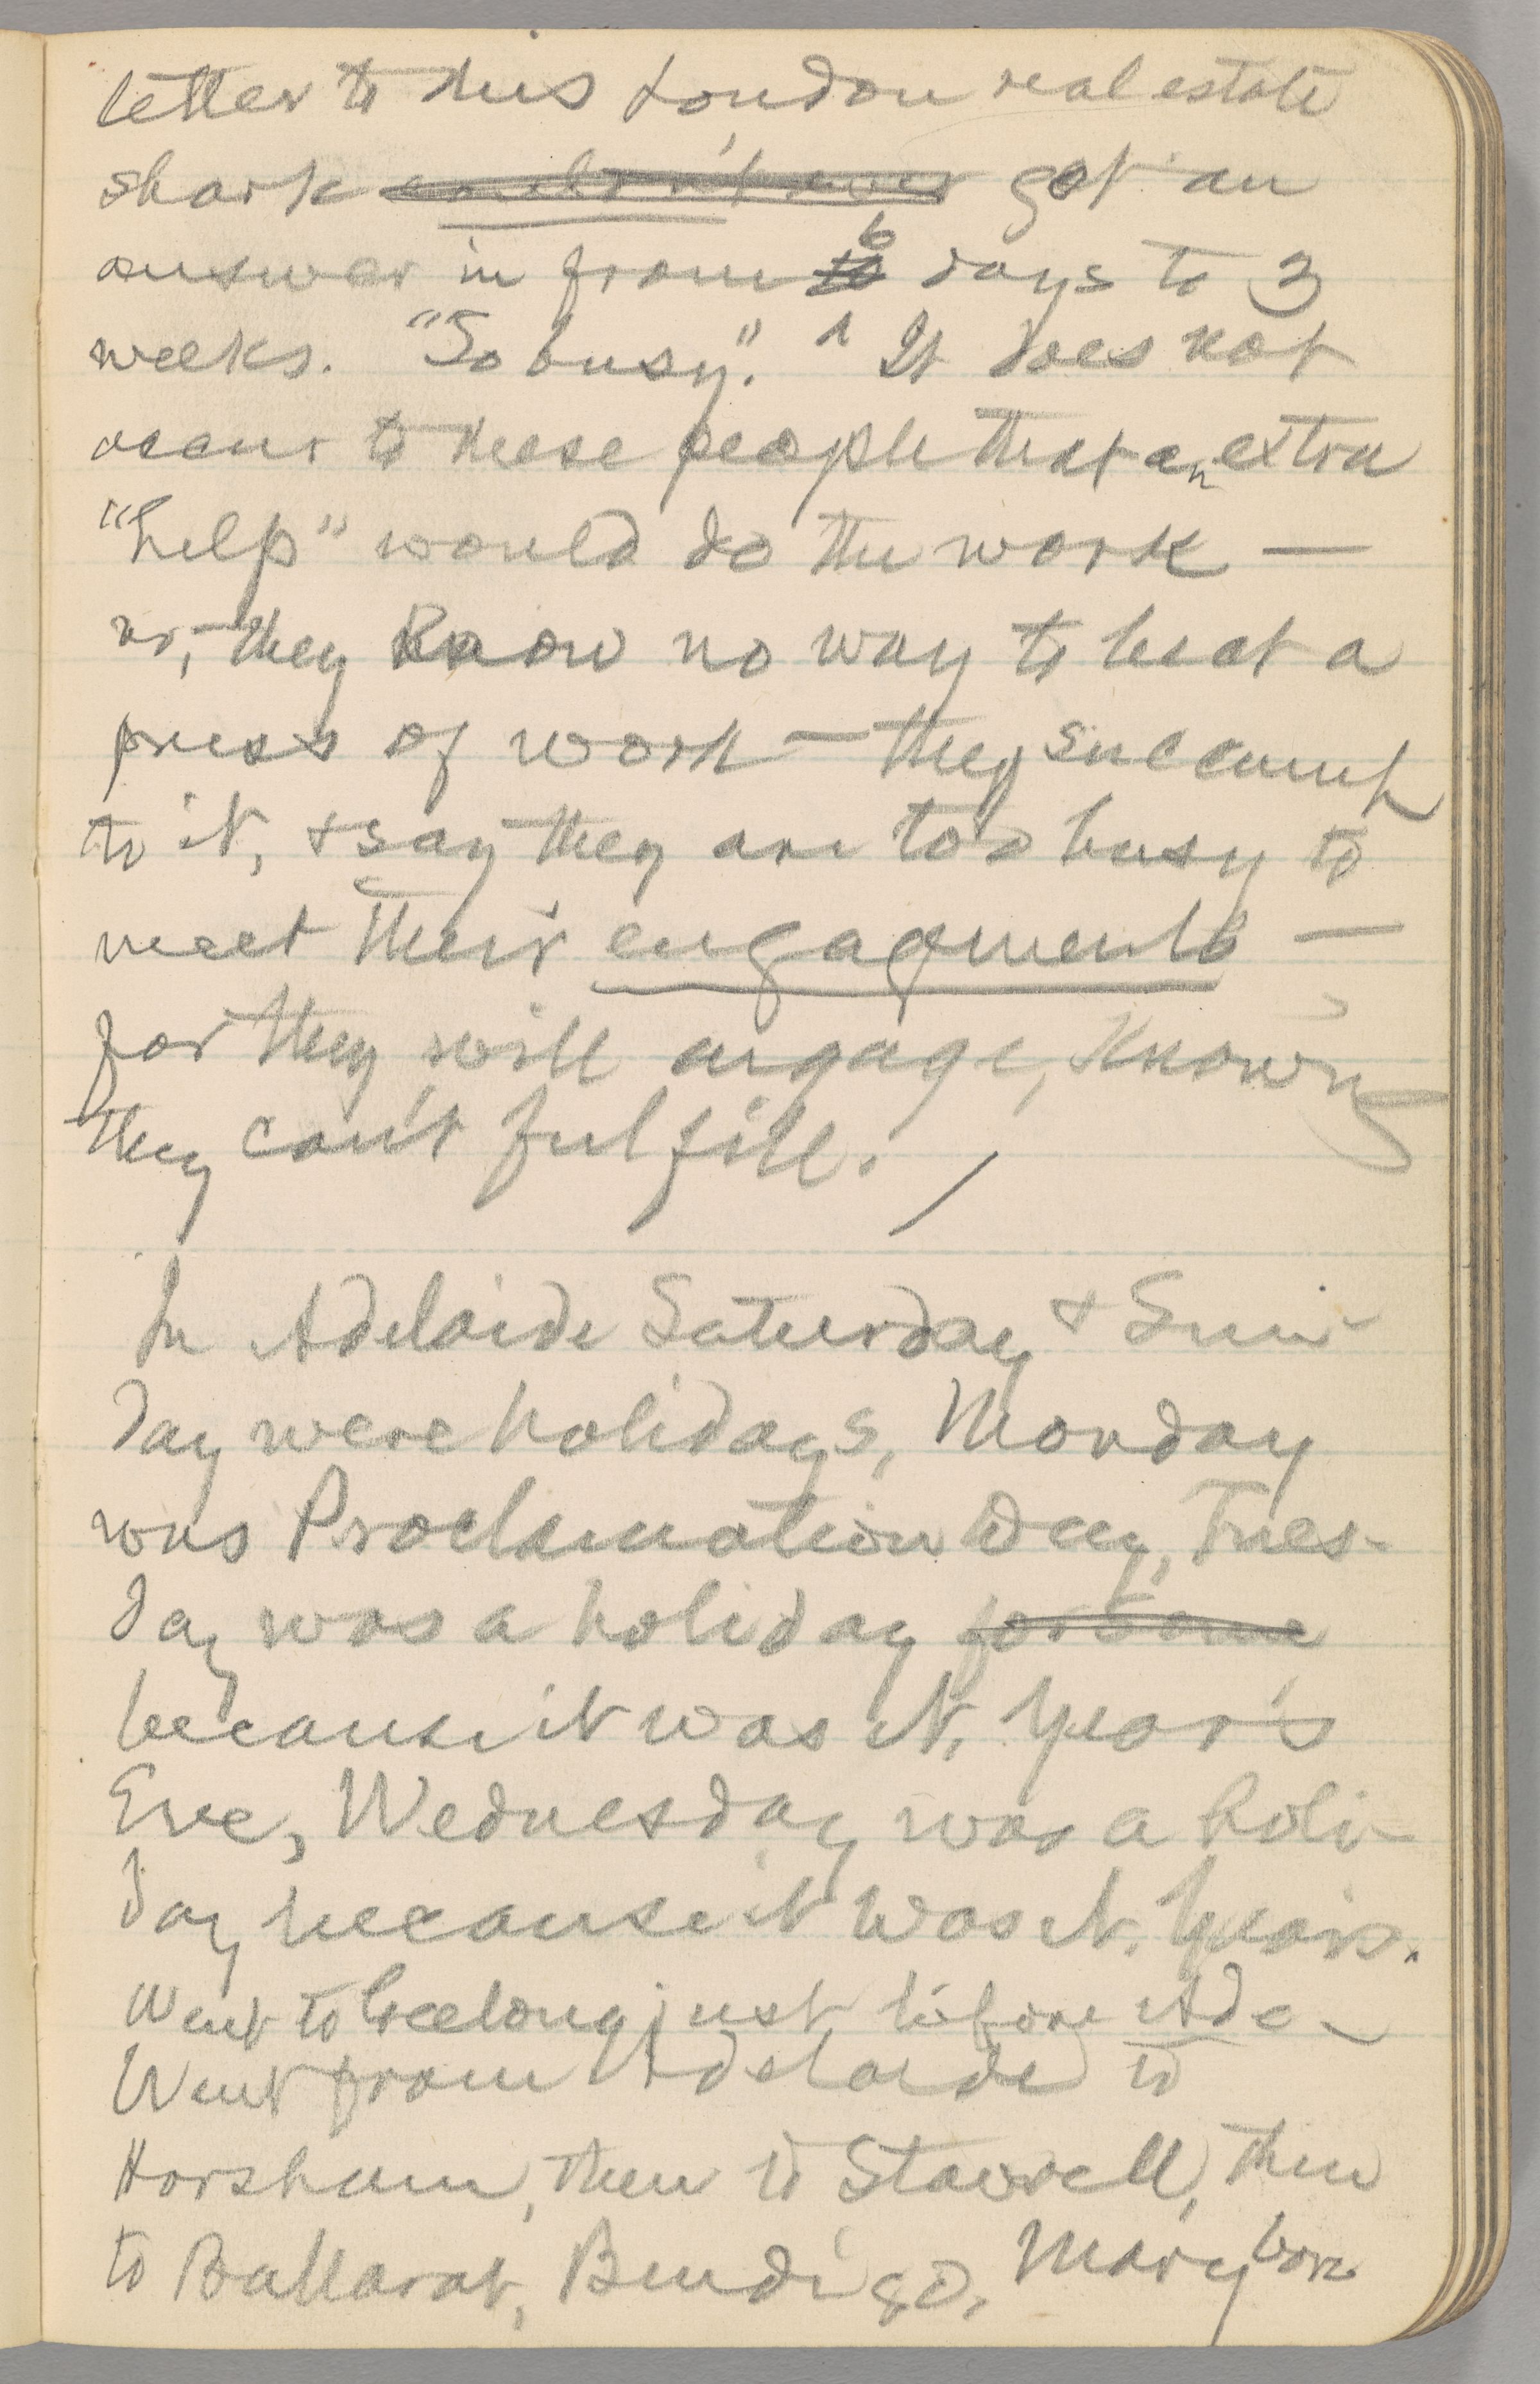 letter to this London real estate
shark couldn't ever got an
answer in from 10 6 days to 3
weeks. "So busy." It does not
occur to these people that an extra
"help" would do the work —
no, — they know no way to beat a
press of work — they succumb
to it, & say they are too busy to
meet their engagements —
for they will engage, knowing
they can't fulfill. /
In Adelaide Saturday & Sun-
day were holidays, Monday
was Proclamation Day, Tues-
day was a holiday for some
because it was N. Year's
Eve, Wednesday was a holi-
day because it was N. Year's.
Went to Geelong just before Ade-
Went from Adelaide to
Horsham, then to Stawell, then
to Ballarat, Bendigo, Marybor